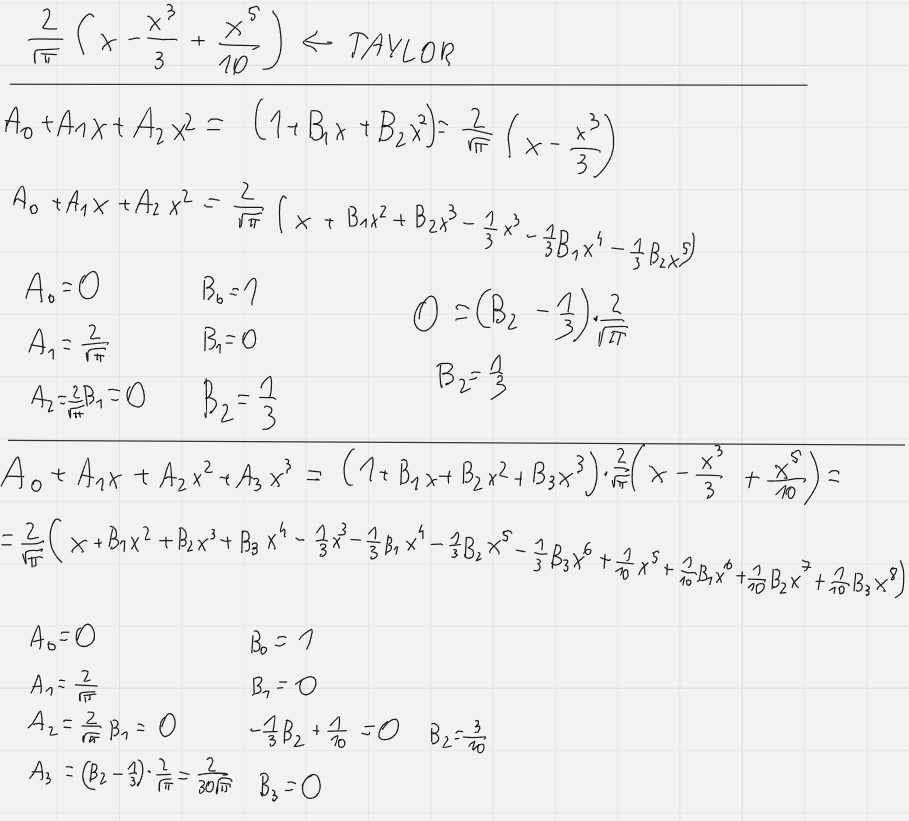 2/√π (x - x³/3 + x⁵/10) ← TAYLOR
A₀ + A₁x + A₂x² = (1 + B₁x + B₂x²) = 2/√π (x - x³/3)
A₀ + A₁x + A₂x² = 2/√π (x + B₁x² + B₂x³ - 1/3 x³ - 1/3 B₁x⁴ - 1/3 B₂x⁵)
A₀ = 0 B₀ = 1 0 = (B₂ - 1/3) · 2/√π
A₁ = 2/√π B₁ = 0 B₂ = 1/3
A₂ = 2/√π B₁ = 0 B₂ = 1/3
A₀ + A₁x + A₂x² + A₃x³ = (1 + B₁x + B₂x² + B₃x³) · 2/√π (x - x³/3 + x⁵/10) =
= 2/√π (x + B₁x² + B₂x³ + B₃x⁴ - 1/3 x³ - 1/3 B₁x⁴ - 1/3 B₂x⁵ - 1/3 B₃x⁶ + 1/10 x⁵ + 1/10 B₁x⁶ + 1/10 B₂x⁷ + 1/10 B₃x⁸)
A₀ = 0 B₀ = 1
A₁ = 2/√π B₁ = 0
A₂ = 2/√π B₁ = 0 -1/3 B₂ + 1/10 = 0 B₂ = 3/10
A₃ = (B₂ - 1/3) · 2/√π = 2/30√π B₃ = 0